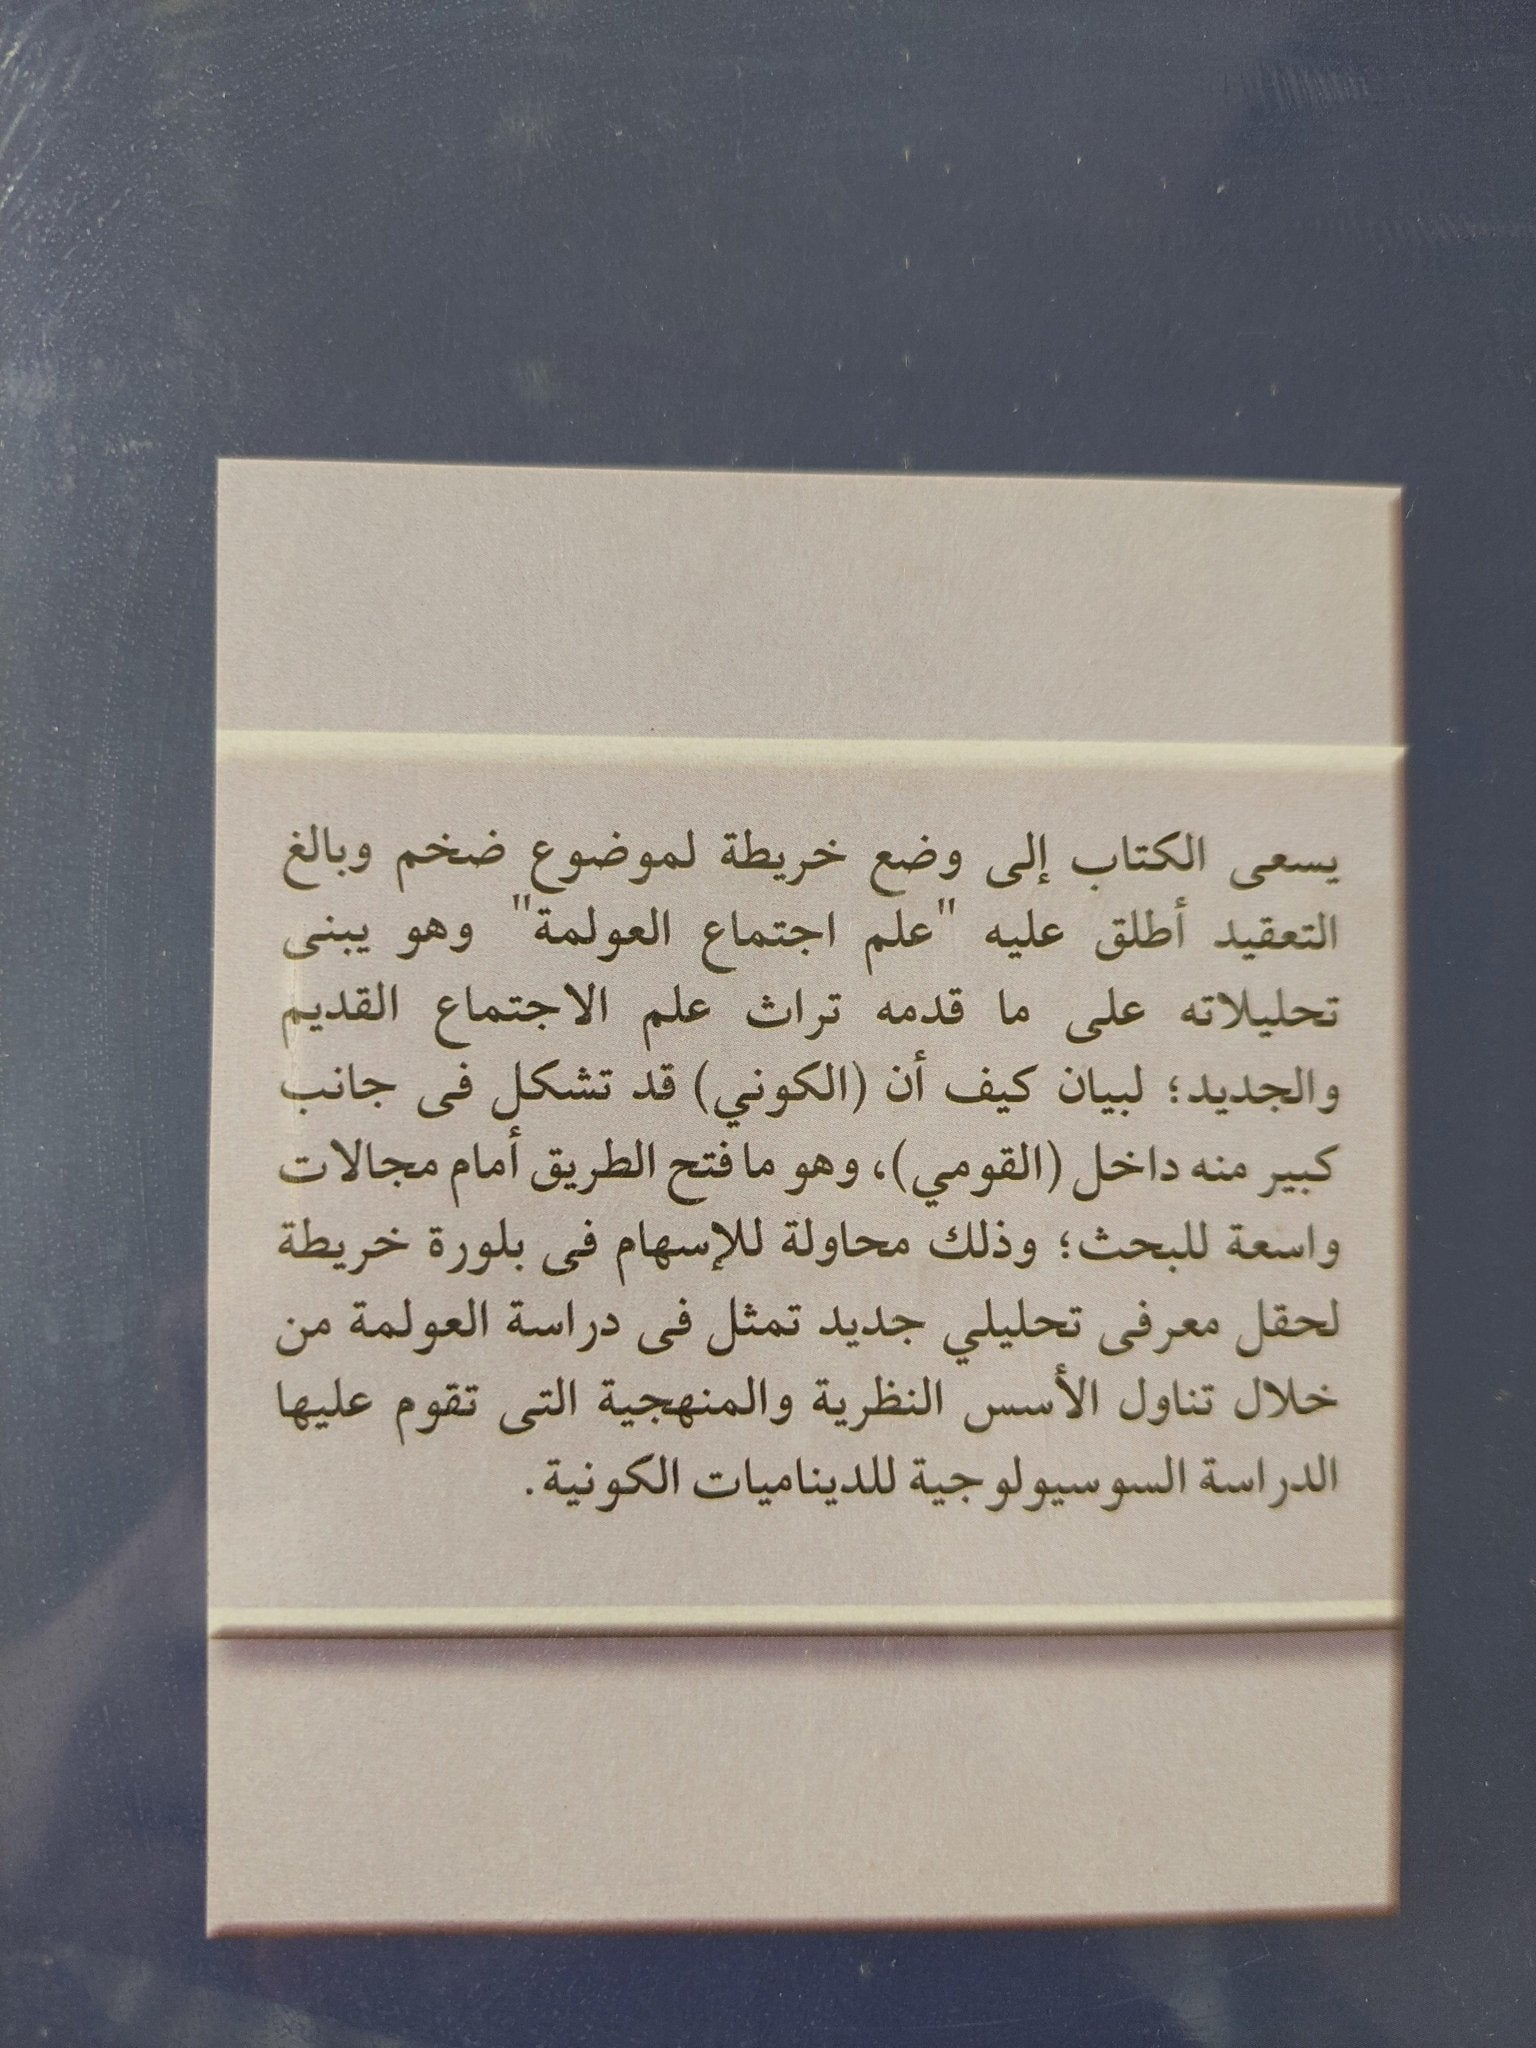 يسعى الكتاب إلى وضع خريطة لموضوع ضخم وبالغ
التعقيد أطلق عليه "علم اجتماع العولمة" وهو يبنى
تحليلاته على ما قدمه تراث علم الاجتماع القديم
والجديد؛ لبيان كيف أن (الكوني) قد تشكل فى جانب
كبير منه داخل (القومي)، وهو مافتح الطريق أمام مجالات
واسعة للبحث؛ وذلك محاولة للإسهام فى بلورة خريطة
لحقل معرفى تحليلي جديد تمثل فى دراسة العولمة من
خلال تناول الأسس النظرية والمنهجية التى تقوم عليها
الدراسة السوسيولوجية للديناميات الكونية.